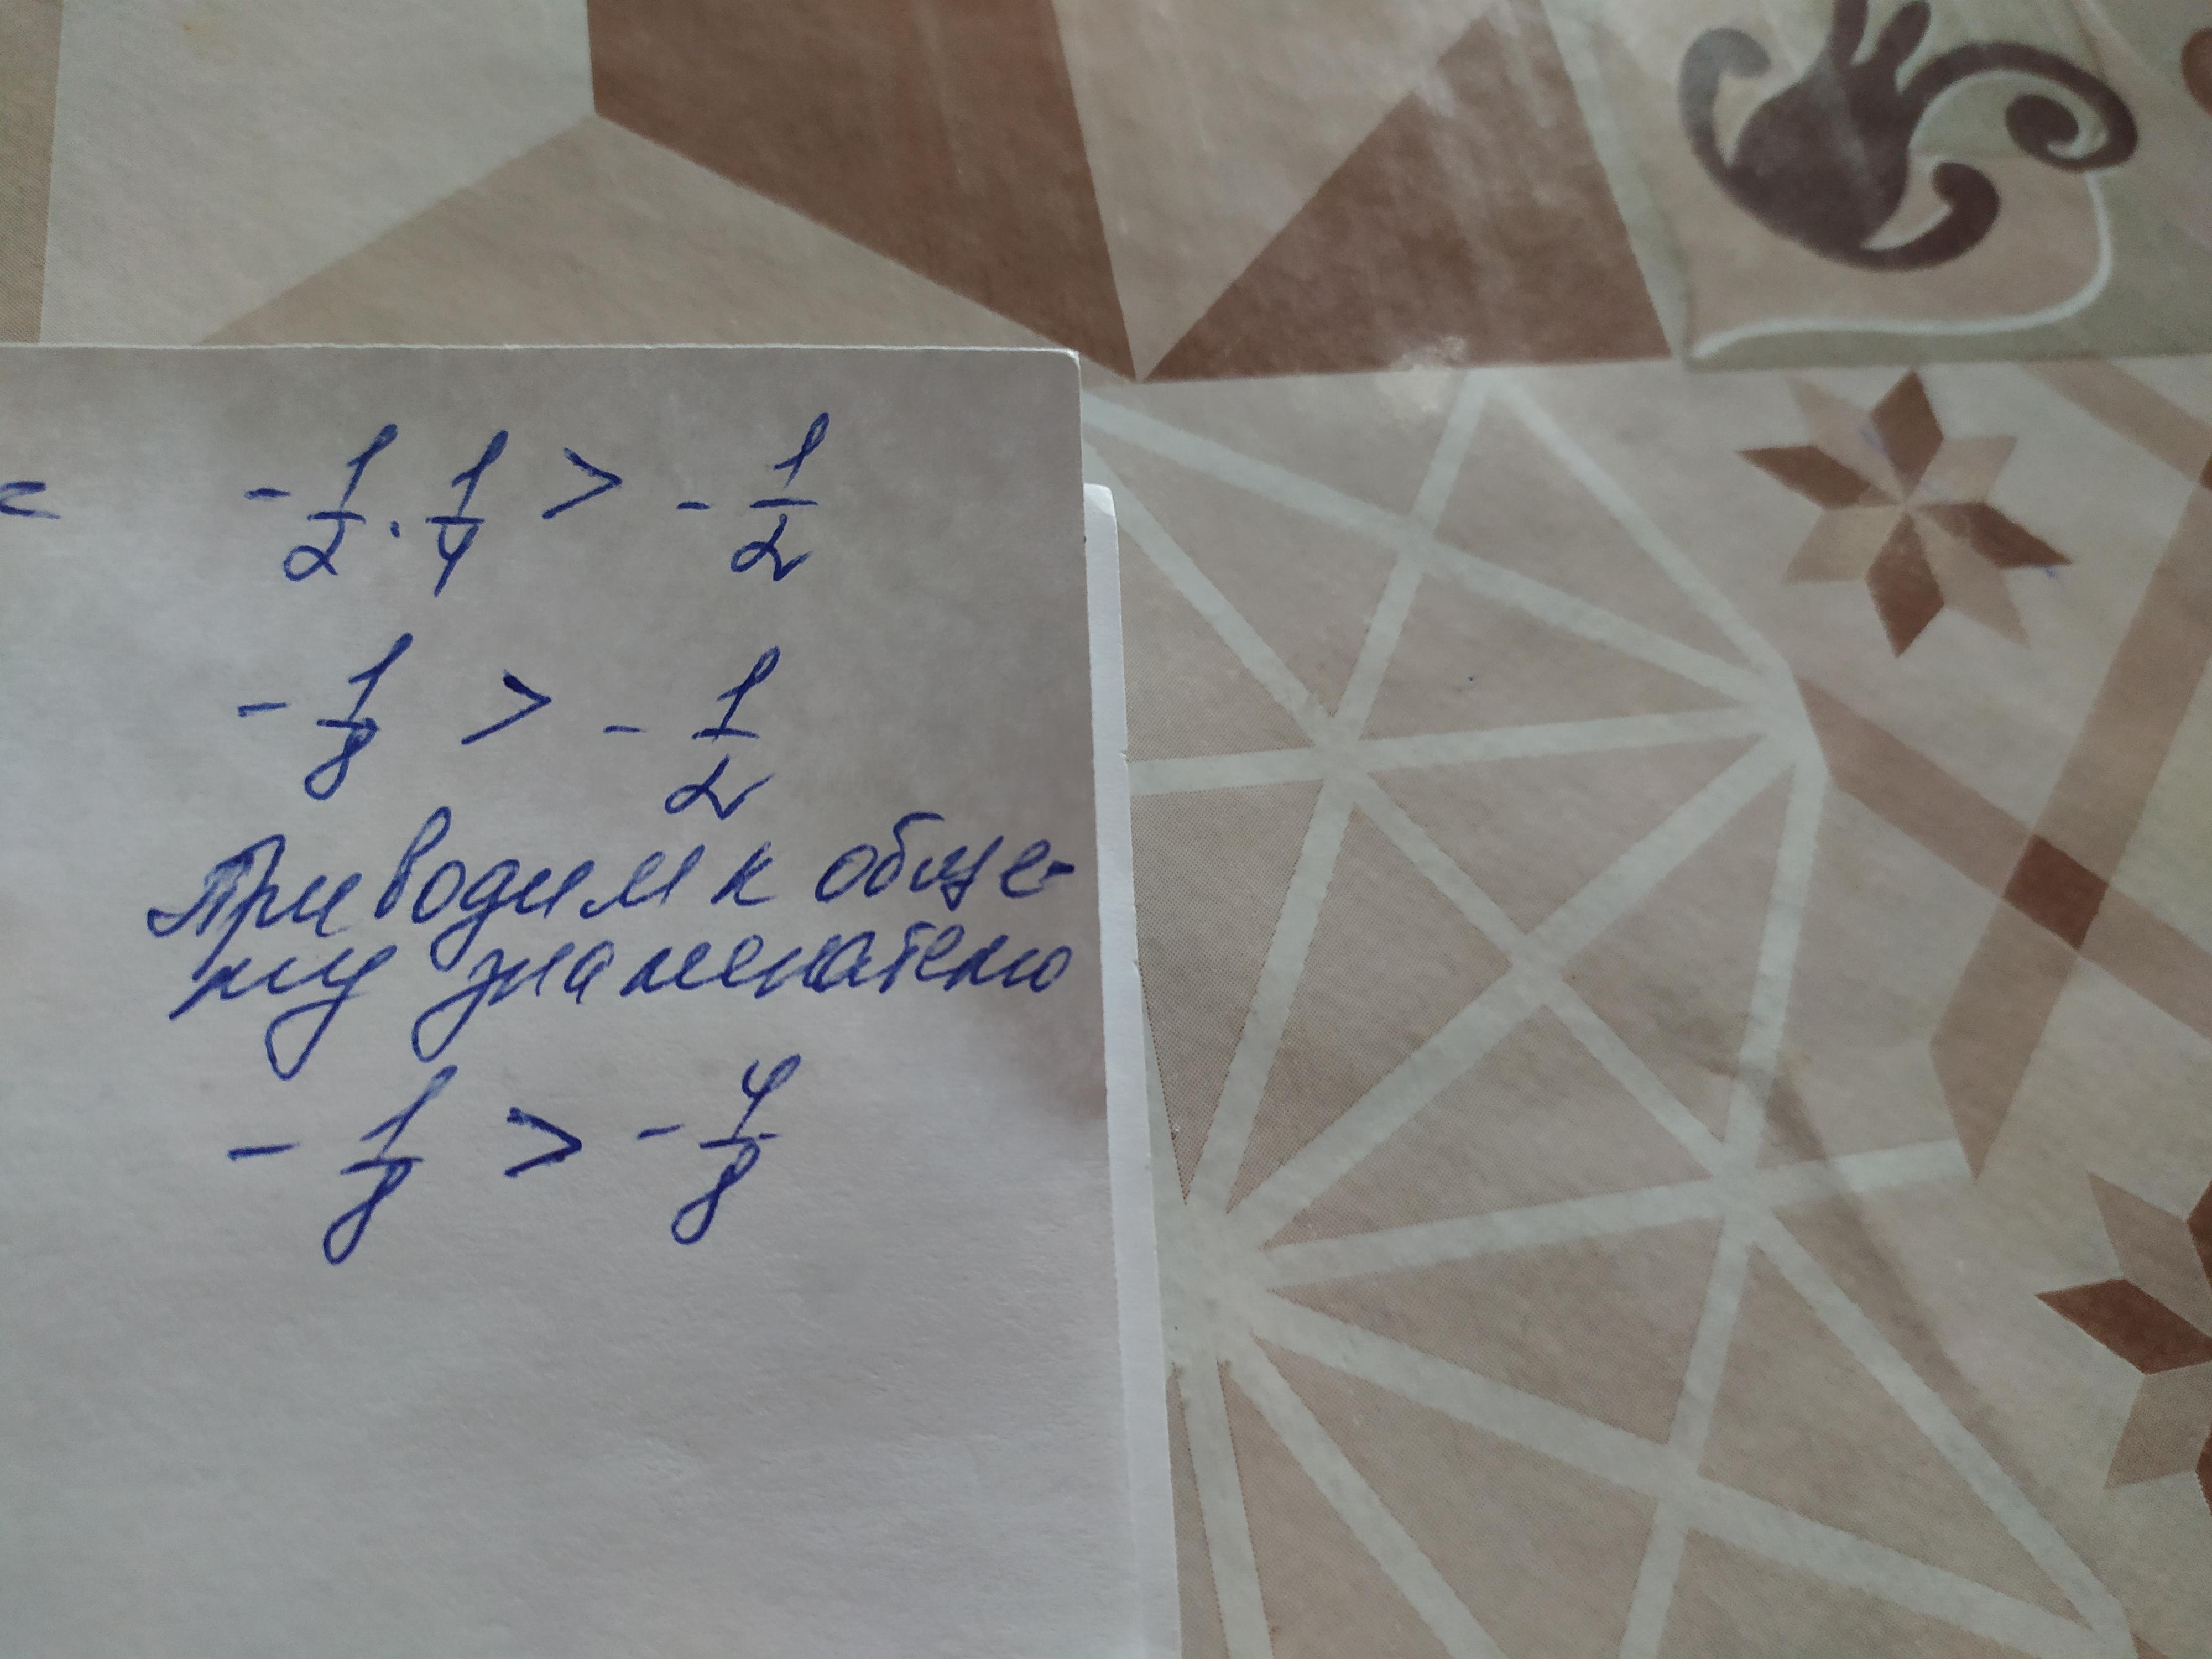 = -1/2 · 1/4 > -1/2
-1/8 > -1/2
Приводим к обще-
му знаменателю
-1/8 > -4/8